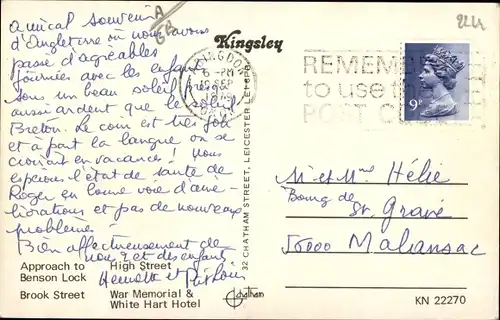 Amical souvenir
d'Angleterre où nous avons
passé d'agréables
journées avec les enfants
sous un beau soleil presqu'
aussi ardent que le soleil
Breton. Le coin est très joli
et à part la langue on se
croirait en vacances ! Nous
espérons l'état de santé de
Roger en bonne voie d'amé-
liorations et pas de nouveaux
problèmes.
Bien affectueusement de
nous 2 et des enfants
Henriette et
Approach to Benson Lock
High Street
Brook Street
War Memorial &
White Hart Hotel
Kingsley
32 CHATHAM STREET, LEICESTER
Chatham
6 - PM
REMEMBER
to use the
POST CODE
9P
224
M et Mme Hélie
Bourg de
St. Gravé
56000 Malansac
KN 22270